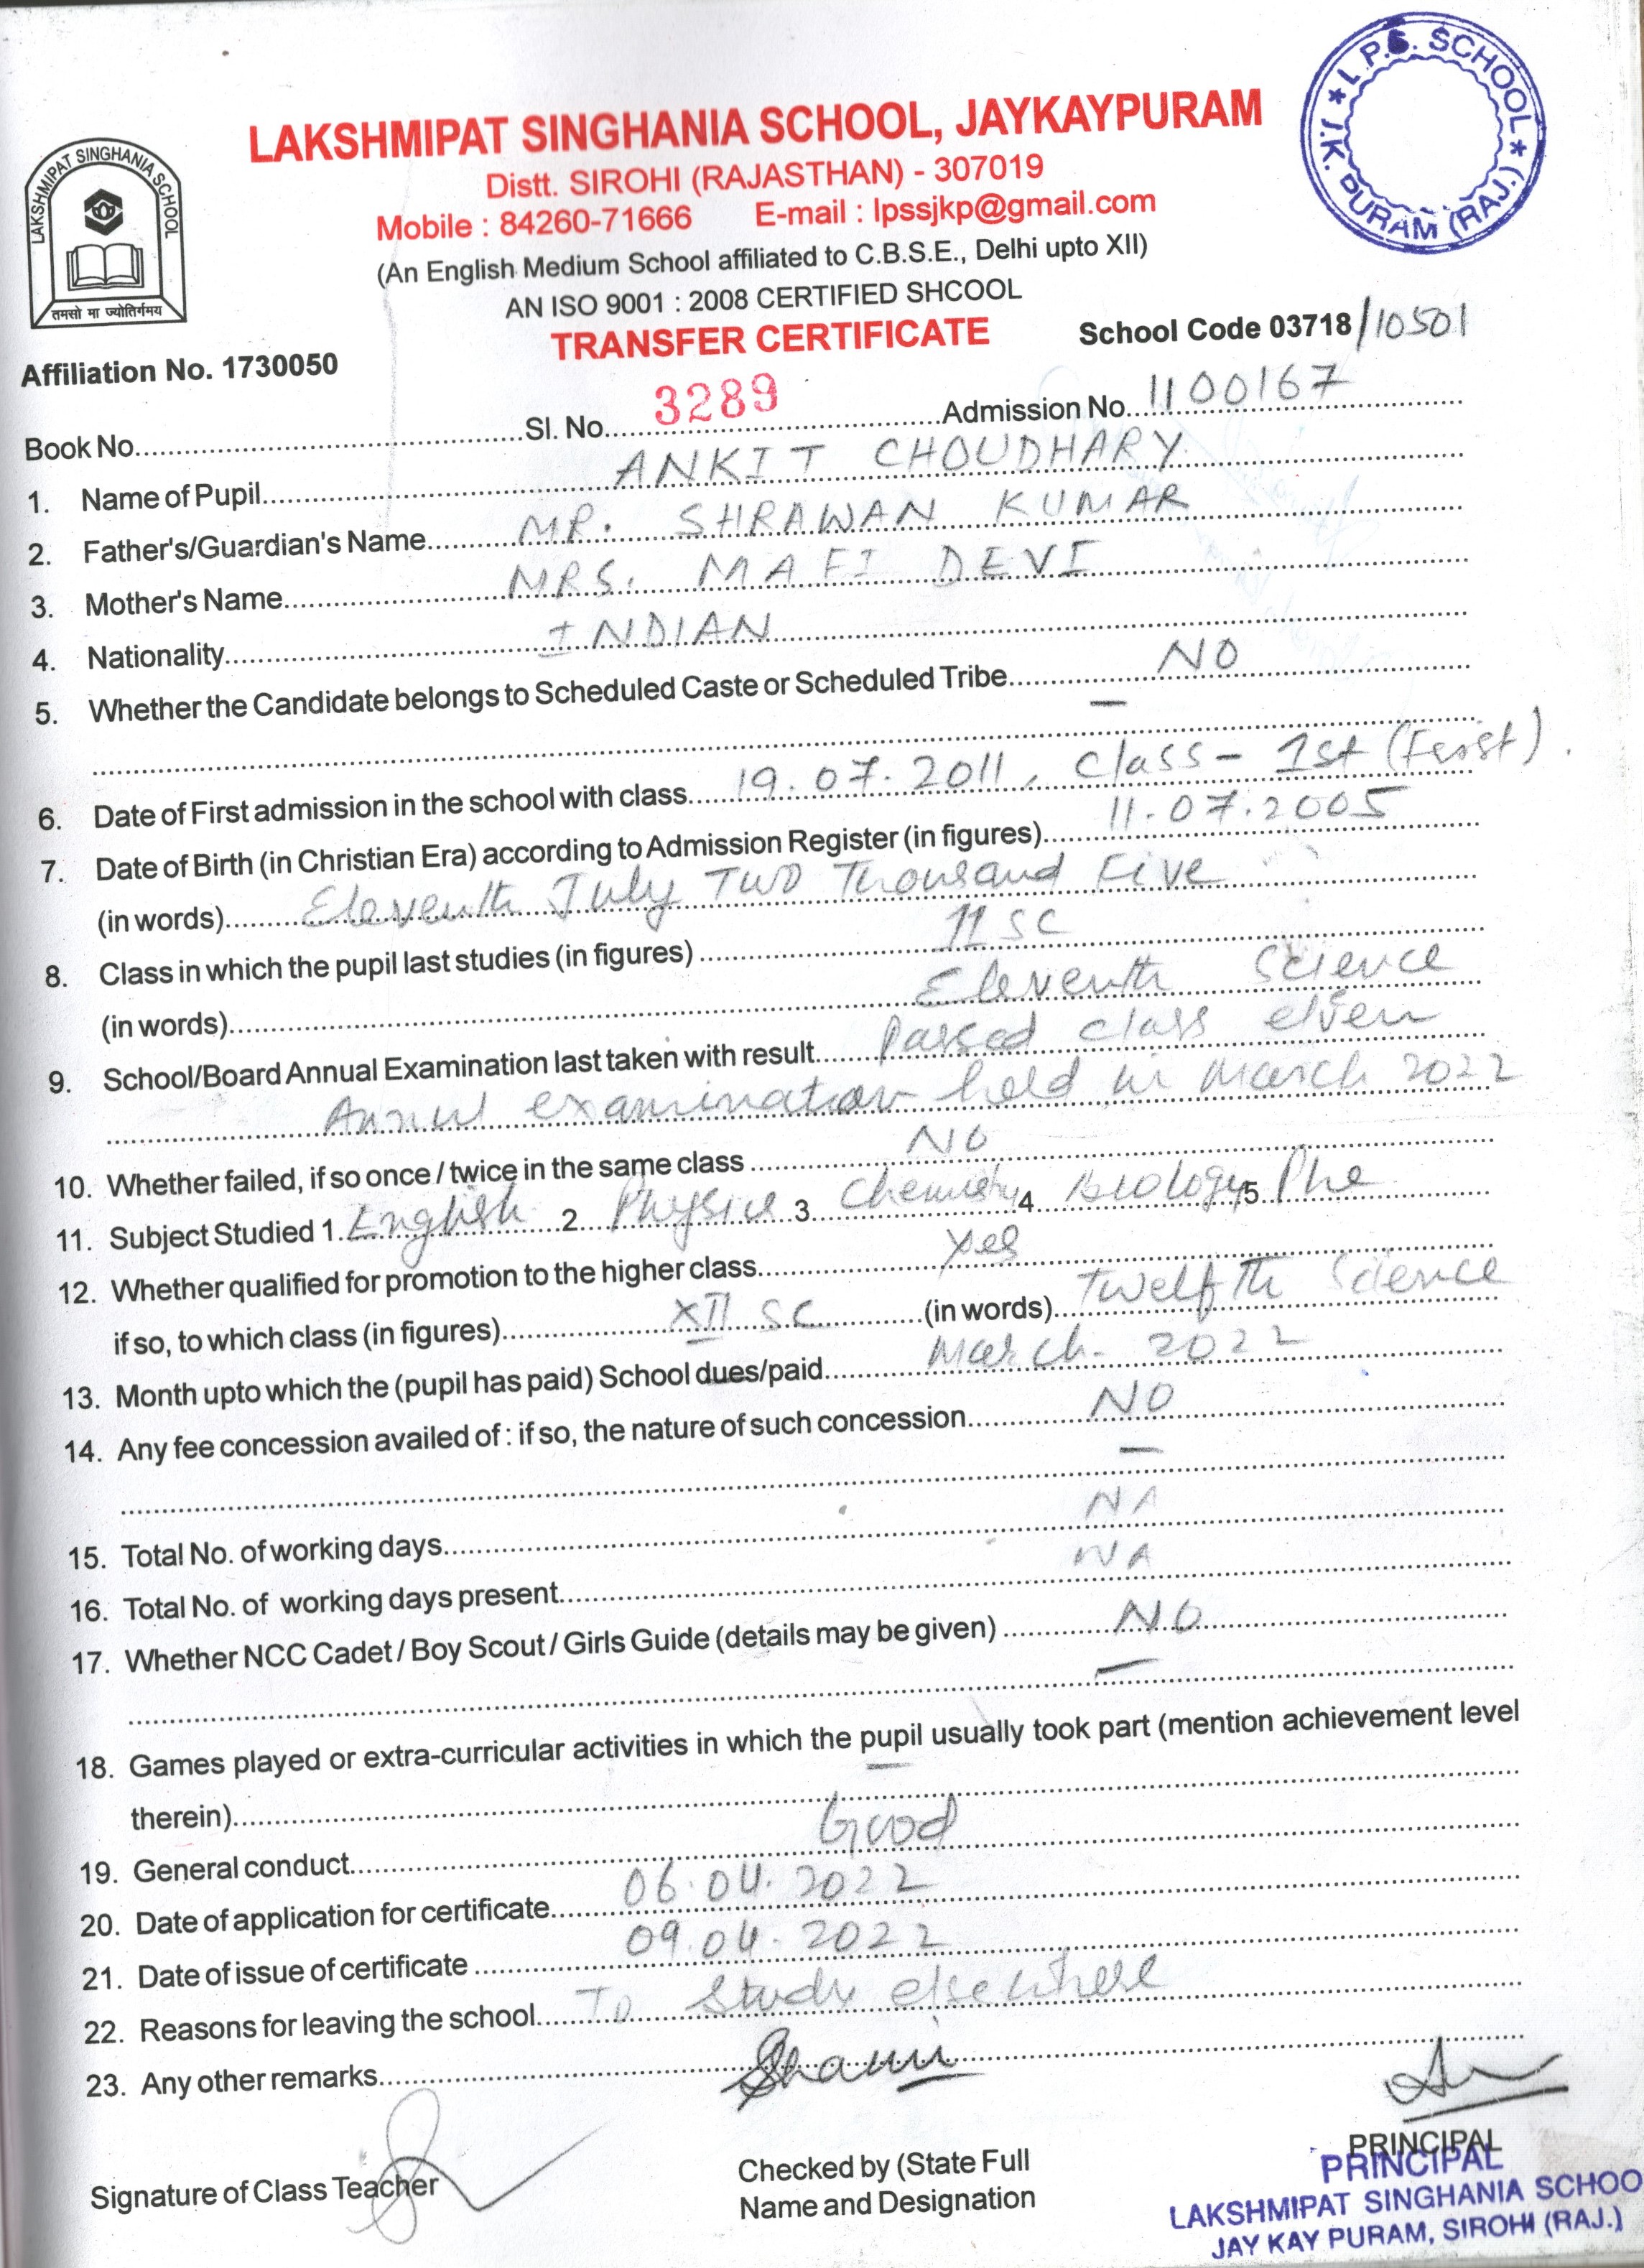 L.P.S. SCHOOL * J.K. PURAM (RAJ.) *
LAKSHMIPAT SINGHANIA SCHOOL
तमसो मा ज्योतिर्गमय
LAKSHMIPAT SINGHANIA SCHOOL, JAYKAYPURAM
Distt. SIROHI (RAJASTHAN) - 307019
Mobile : 84260-71666 E-mail : lpssjkp@gmail.com
(An English Medium School affiliated to C.B.S.E., Delhi upto XII)
AN ISO 9001 : 2008 CERTIFIED SHCOOL
TRANSFER CERTIFICATE
School Code 03718/10501
Affiliation No. 1730050
Book No. Sl. No. 3289 Admission No. 1100167
1. Name of Pupil ANKIT CHOUDHARY
2. Father's/Guardian's Name MR. SHRAWAN KUMAR
3. Mother's Name MRS. MAFI DEVI
4. Nationality INDIAN
5. Whether the Candidate belongs to Scheduled Caste or Scheduled Tribe NO
—
6. Date of First admission in the school with class 19.07.2011, Class - 1st (First).
7. Date of Birth (in Christian Era) according to Admission Register (in figures) 11.07.2005
(in words) Eleventh July Two Thousand Five
8. Class in which the pupil last studies (in figures) 11 SC
(in words) Eleventh Science
9. School/Board Annual Examination last taken with result Passed class elven
Annul examination held in March 2022
10. Whether failed, if so once / twice in the same class NO
11. Subject Studied 1. English 2 Physics 3 Chemistry 4 Biology 5 Phe
12. Whether qualified for promotion to the higher class Yes
if so, to which class (in figures) XII SC (in words) Twelfth Science
13. Month upto which the (pupil has paid) School dues/paid March - 2022
14. Any fee concession availed of : if so, the nature of such concession NO
—
15. Total No. of working days NA
16. Total No. of working days present NA
17. Whether NCC Cadet / Boy Scout / Girls Guide (details may be given) NO
—
18. Games played or extra-curricular activities in which the pupil usually took part (mention achievement level
therein) —
19. General conduct Good
20. Date of application for certificate 06.04.2022
21. Date of issue of certificate 09.04.2022
22. Reasons for leaving the school To Study elsewhere
23. Any other remarks
Signature of Class Teacher
Checked by (State Full
Name and Designation
PRINCIPAL
PRINCIPAL
LAKSHMIPAT SINGHANIA SCHOO
JAY KAY PURAM, SIROHI (RAJ.)